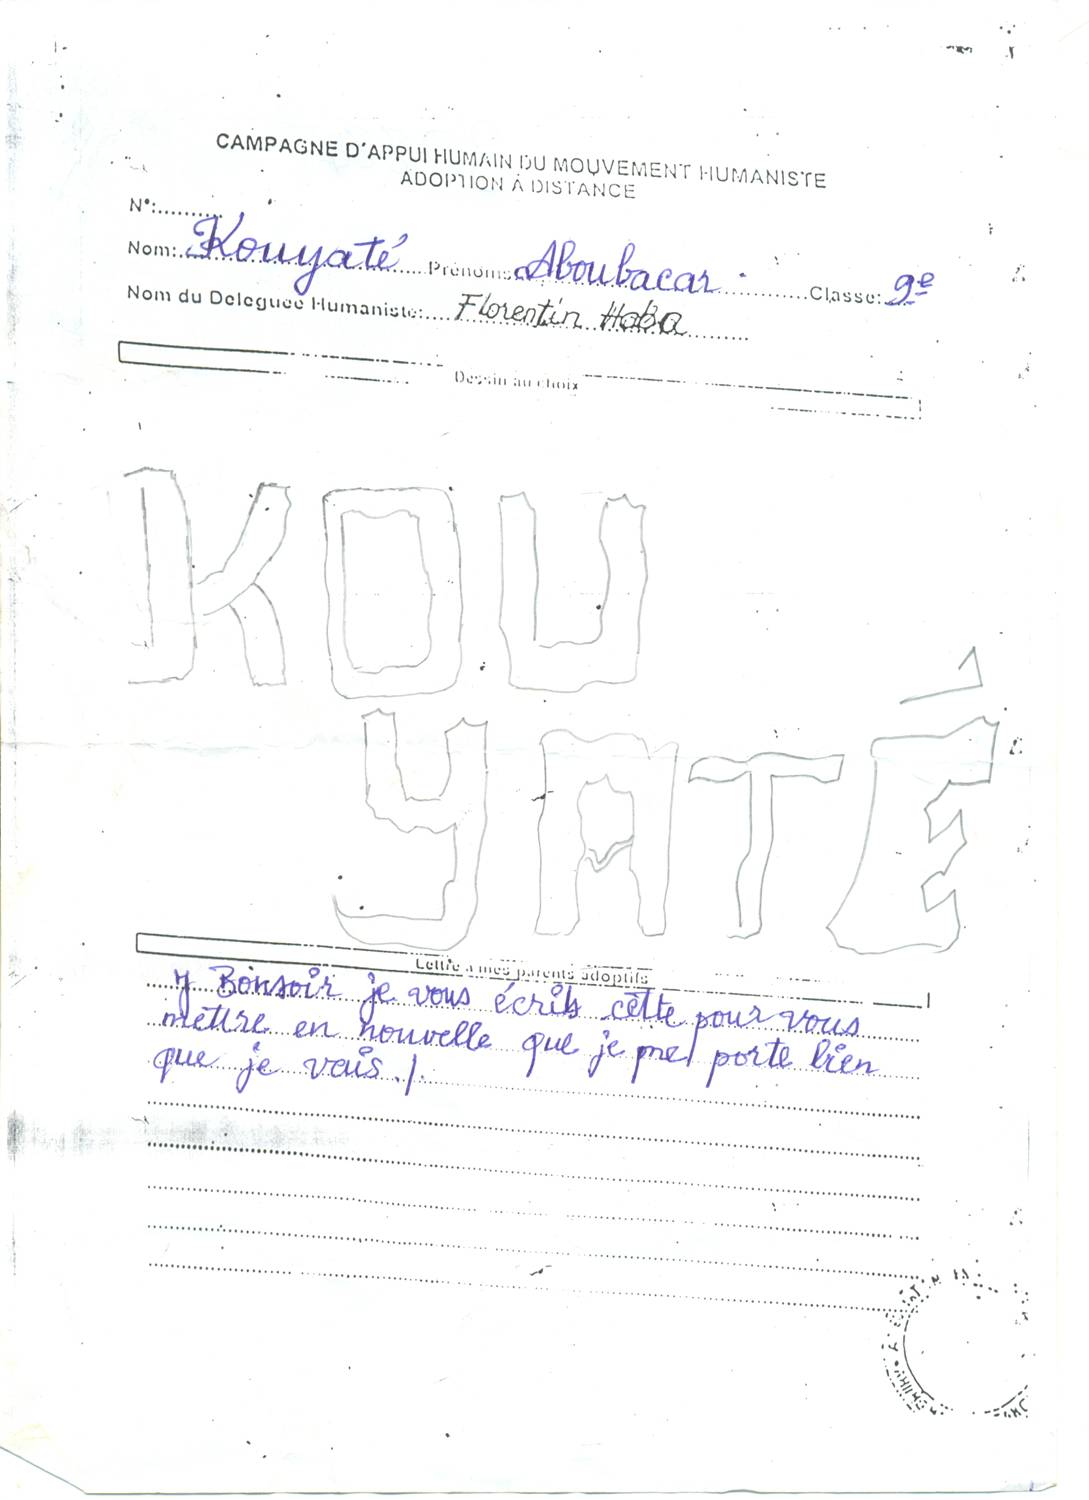 CAMPAGNE D'APPUI HUMAIN DU MOUVEMENT HUMANISTE
ADOPTION À DISTANCE
N°:..........
Nom: Kouyaté Prénoms: Aboubacar Classe: 9e
Nom du Deleguee Humaniste: Florentin Haba
Dessin au choix
KOU
YATÉ
Lettre a mes parents adoptifs
Bonsoir je vous écris cette pour vous
mettre en nouvelle que je me porte bien
que je vais./.